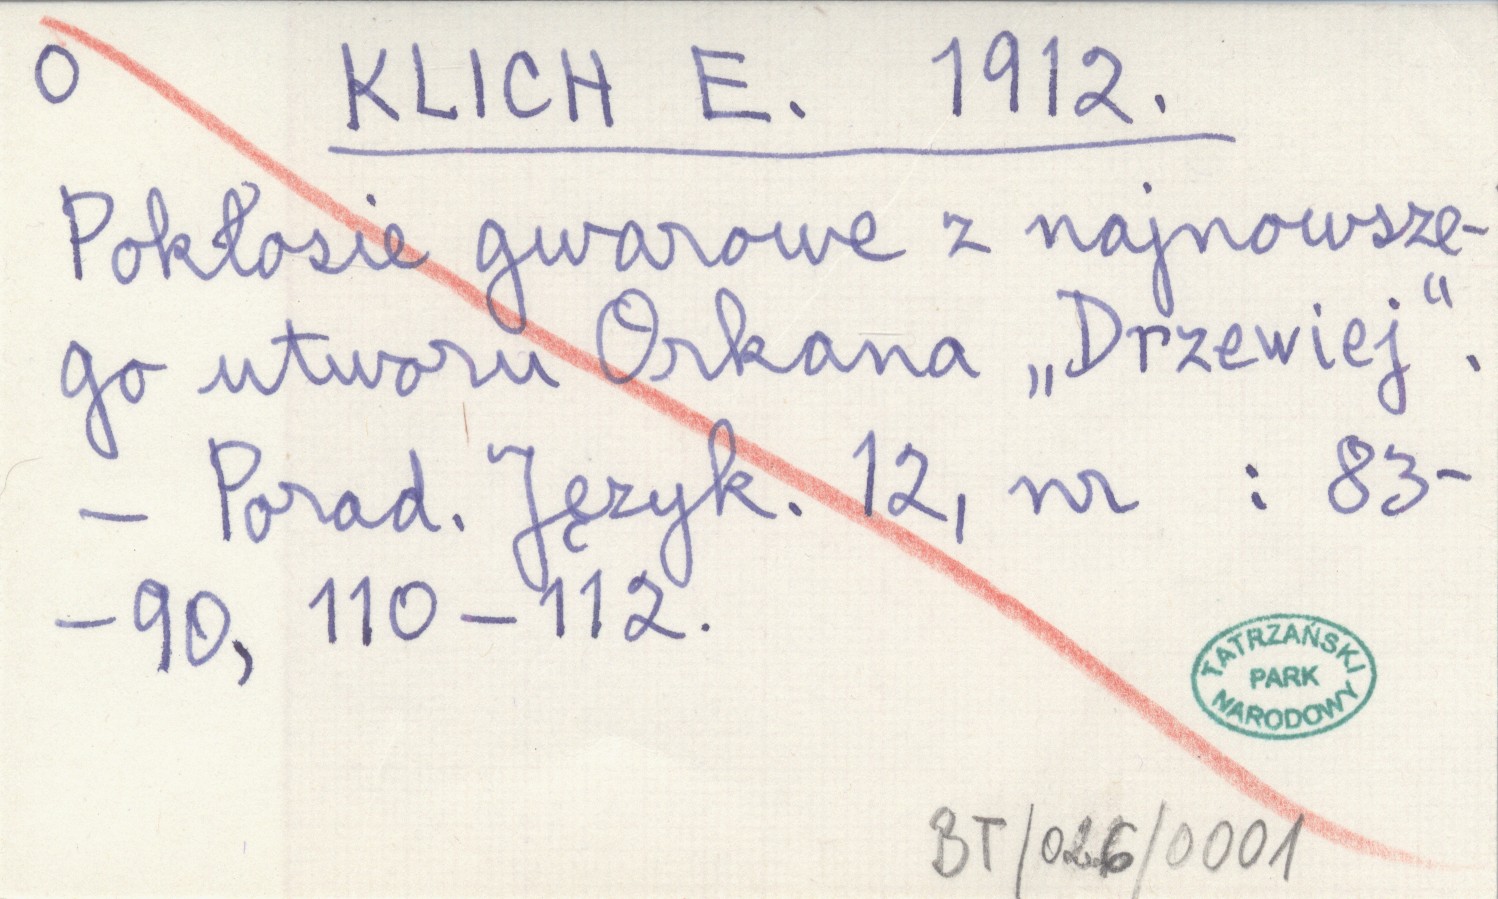 O KLICH E. 1912.
Pokłosie gwarowe z najnowsze-
go utworu Orkana „Drzewiej“.
– Porad. Język. 12, nr : 83-
-90, 110-112.
TATRZAŃSKI
PARK
NARODOWY
BT/026/0001